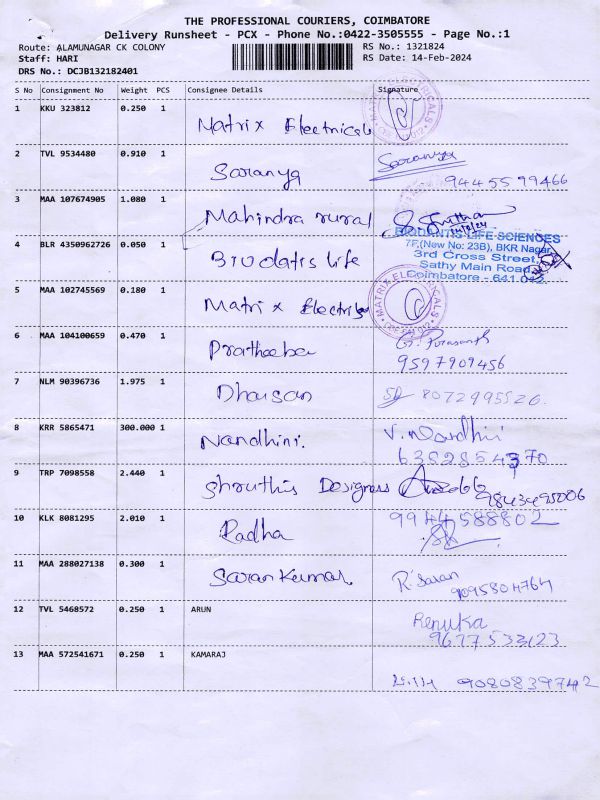 THE PROFESSIONAL COURIERS, COIMBATORE
Delivery Runsheet - PCX - Phone No.:0422-3505555 - Page No.:1
Route: ALAMUNAGAR CK COLONY
RS No.: 1321824
Staff: HARI
RS Date: 14-Feb-2024
DRS No.: DCJB132182401
S No Consignment No Weight PCS Consignee Details Signature
1 KKU 323812 0.250 1 Matrix Electricals
MATRIX ELECTRICALS
2 TVL 9534480 0.910 1 Saranya Saranya
9445599466
3 MAA 107674905 1.080 1 Mahindra rural
4 BLR 4350962726 0.050 1 Biodatis life
LIFE SCIENCES
7F,(New No: 23B), BKR Nagar
3rd Cross Street,
Sathy Main Road,
Coimbatore - 641 012.
5 MAA 102745569 0.180 1 Matrix
MATRIX ELECTRICALS
6 MAA 104100659 0.470 1 Pratheeba
9597909456
7 NLM 90396736 1.975 1 Dharsan 8072995526
8 KRR 5865471 300.000 1 Nandhini.
6382854370
9 TRP 7098558 2.440 1 Shruthis Designers
9843495006
10 KLK 8081295 2.010 1 Radha 9944588802
11 MAA 288027138 0.300 1 Saran Kumar. R. Saran
9095804764
12 TVL 5468572 0.250 1 ARUN Renuka
9677533123
13 MAA 572541671 0.250 1 KAMARAJ
9080839742